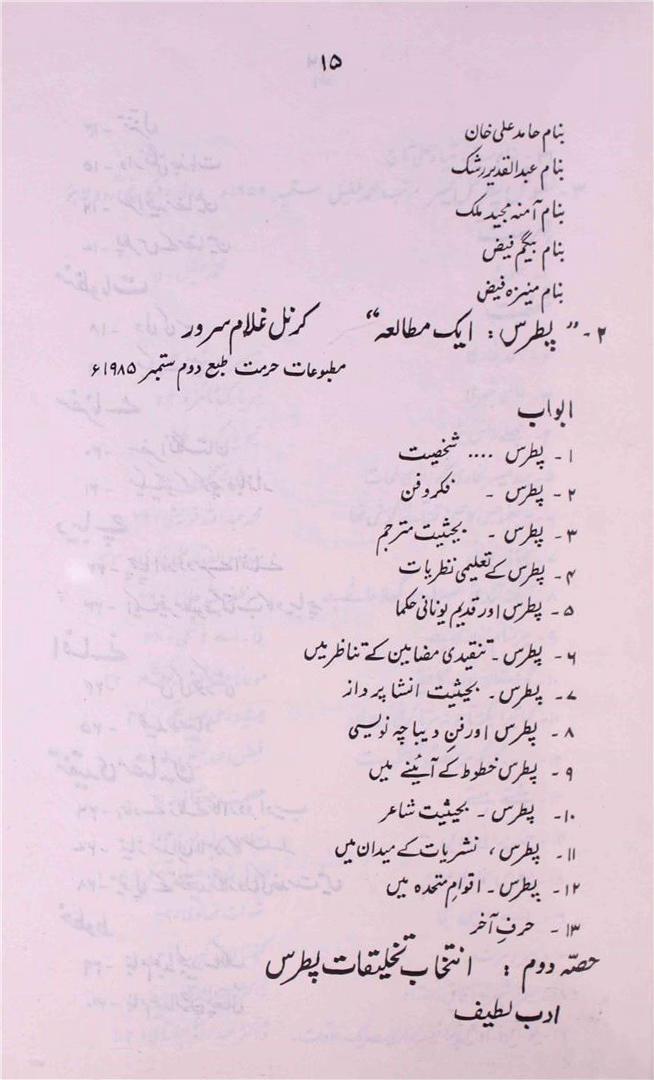 ۱۵
بنام حامد علی خان
بنام عبدالقدیر رشک
بنام آمنہ مجید ملک
بنام بیگم فیض
بنام منیزہ فیض
۲۔ ”پطرس: ایک مطالعہ“ کرنل غلام سرور
مطبوعات حرمت طبع دوم ستمبر ۱۹۸۵ء
ابواب
۱۔ پطرس .... شخصیت
۲۔ پطرس ۔ فکر و فن
۳۔ پطرس ۔ بحیثیت مترجم
۴۔ پطرس کے تعلیمی نظریات
۵۔ پطرس اور قدیم یونانی حکما
۶۔ پطرس۔ تنقیدی مضامین کے تناظر میں
۷۔ پطرس۔ بحیثیت انشا پرداز
۸۔ پطرس اور فنِ دیباچہ نویسی
۹۔ پطرس خطوط کے آئینے میں
۱۰۔ پطرس ۔ بحیثیت شاعر
۱۱۔ پطرس، نشریات کے میدان میں
۱۲۔ پطرس۔ اقوامِ متحدہ میں
۱۳۔ حرفِ آخر
حصّہ دوم: انتخاب تخلیقات پطرس
ادب لطیف